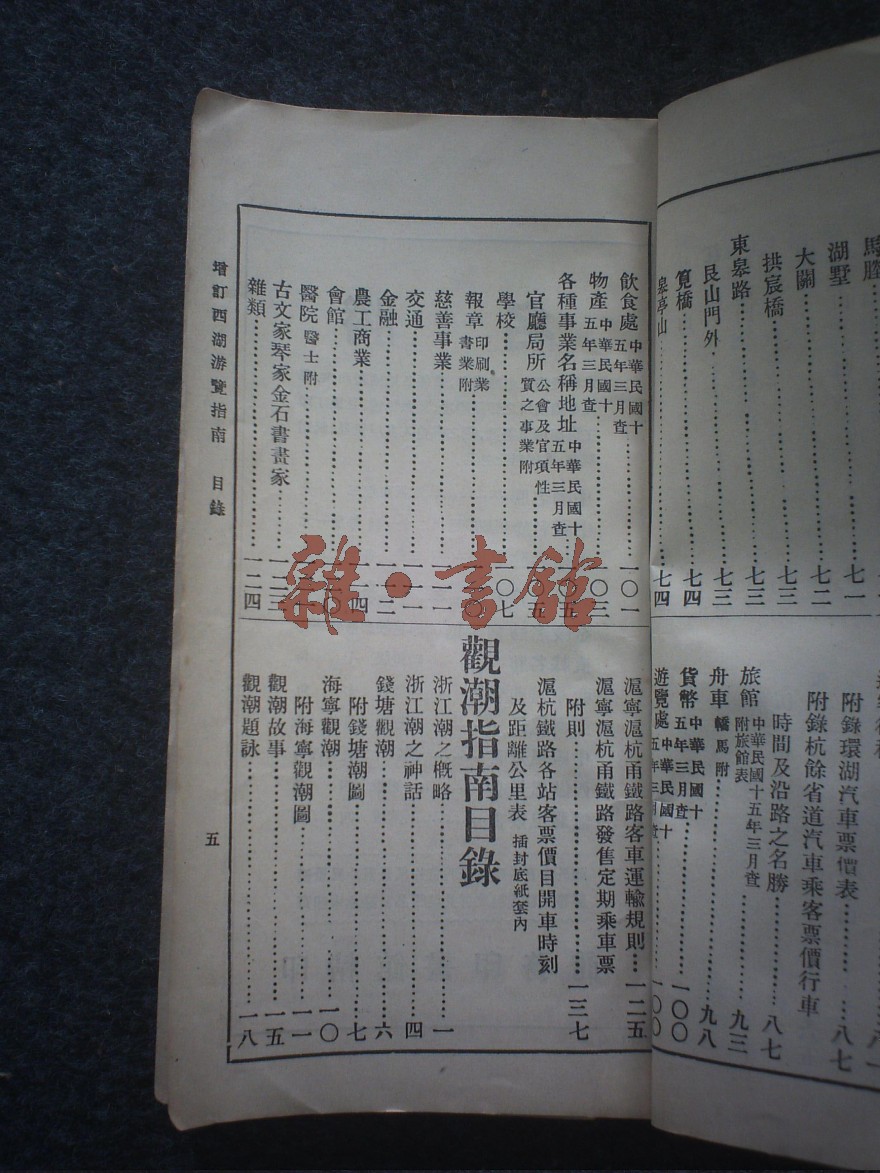 湖墅……七一
大關……七二
拱宸橋……七三
東皋路……七三
艮山門外……七三
筧橋……七四
皋亭山……七四
附錄環湖汽車票價表……八七
附錄杭餘省道汽車乘客票價行車
時間及沿路之名勝……八七
旅館 中華民國十五年三月查 附旅館表……九三
舟車 轎馬附……九八
貨幣 中華民國十五年三月查……一〇〇
遊覽處 中華民國十五年三月查……一〇〇
飲食處 中華民國十五年三月查……一〇一
物產 中華民國十五年三月查……一〇三
各種事業名稱地址 中華民國十五年三月查……一〇五
官廳局所 公會及官項性質之事業附……一〇五
學校……一〇七
報章 印刷業書業附
慈善事業……一一一
交通……一一一
金融……一一二
農工商業……一一四
會館
醫院 醫士附
古文家琴家金石書畫家
雜類……一二四
滬寧滬杭甬鐵路客車運輸規則……一二五
滬寧滬杭甬鐵路發售定期乘車票
附則……一三七
滬杭鐵路各站客票價目開車時刻
及距離公里表 插封底紙套內
觀潮指南目錄
浙江潮之概略……一
浙江潮之神話……四
錢塘觀潮……六
附錢塘潮圖……七
海寧觀潮……一〇
附海寧觀潮圖……一一
觀潮故事……一五
觀潮題詠……一八
增訂西湖游覽指南 目錄
五
雜·書館